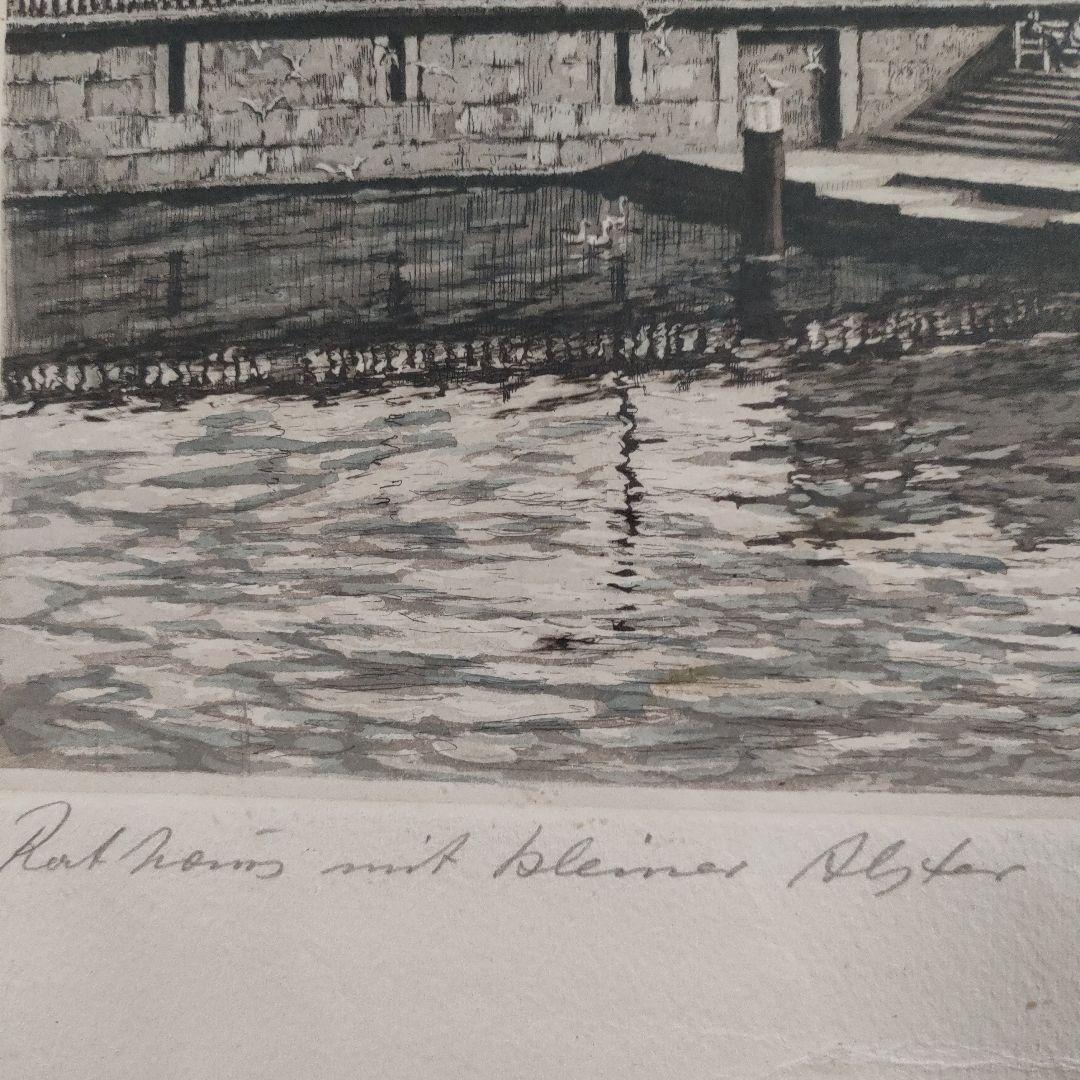 Rathaus mit kleiner Alster